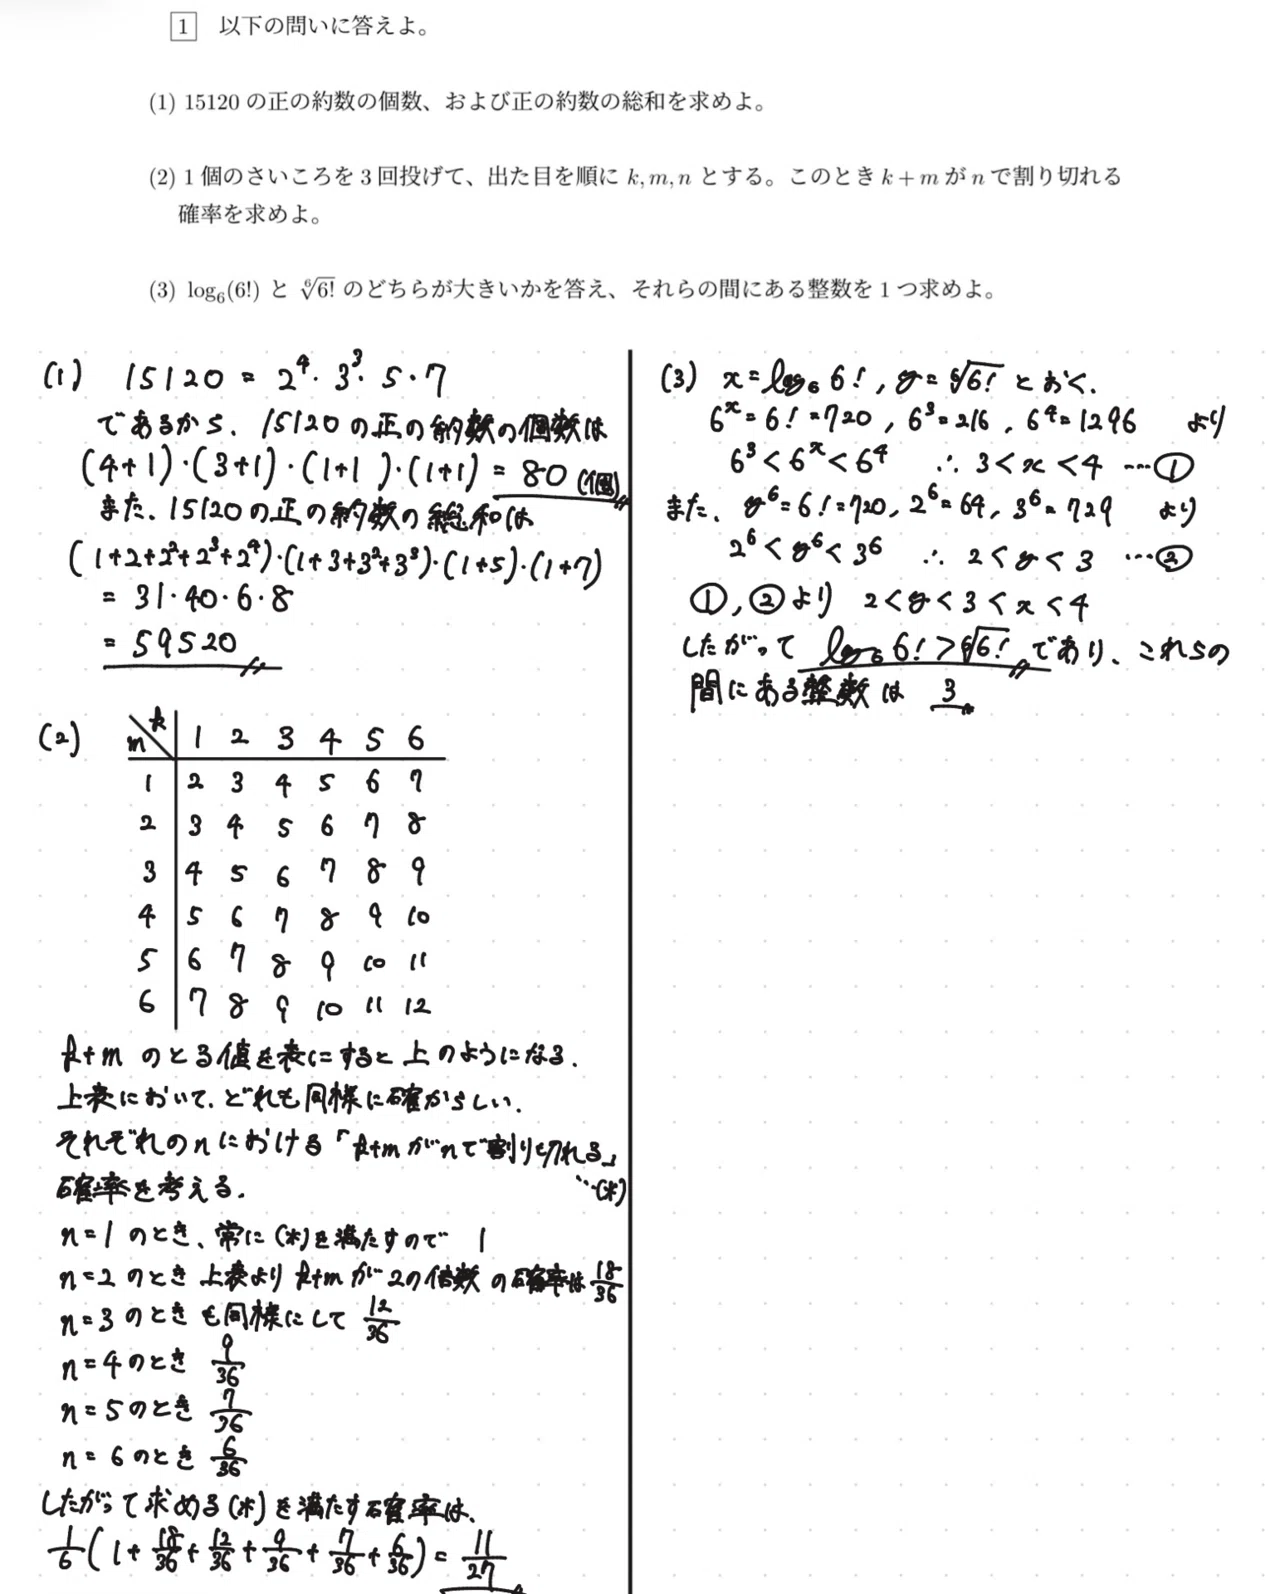 1 以下の問いに答えよ。
(1) 15120 の正の約数の個数、および正の約数の総和を求めよ。
(2) 1 個のさいころを 3 回投げて、出た目を順に k, m, n とする。このとき k + m が n で割り切れる
確率を求めよ。
(3) log₆(6!) と ⁶√6! のどちらが大きいかを答え、それらの間にある整数を 1 つ求めよ。
(1) 15120 = 2⁴・3³・5・7
であるから、15120の正の約数の個数は
(4+1)・(3+1)・(1+1)・(1+1) = 80 (個)
また、15120の正の約数の総和は
(1+2+2²+2³+2⁴)・(1+3+3²+3³)・(1+5)・(1+7)
= 31・40・6・8
= 59520
(2) m k 1 2 3 4 5 6
1 2 3 4 5 6 7
2 3 4 5 6 7 8
3 4 5 6 7 8 9
4 5 6 7 8 9 10
5 6 7 8 9 10 11
6 7 8 9 10 11 12
k+m のとる値を表にすると上のようになる.
上表において、どれも同様に確からしい.
それぞれのnにおける「k+mがnで割り切れる」
確率を考える. …(*)
n=1 のとき、常に(*)を満たすので 1
n=2 のとき 上表より k+m が 2の倍数 の確率は 18/36
n=3 のときも同様にして 12/36
n=4 のとき 9/36
n=5 のとき 7/36
n=6 のとき 6/36
したがって求める(*)を満たす確率は、
1/6 (1 + 18/36 + 12/36 + 9/36 + 7/36 + 6/36) = 11/27
(3) x=log₆6!, y=⁶√6! とおく.
6ˣ=6!=720, 6³=216, 6⁴=1296 より
6³<6ˣ<6⁴ ∴ 3<x<4 …①
また、y⁶=6!=720, 2⁶=64, 3⁶=729 より
2⁶<y⁶<3⁶ ∴ 2<y<3 …②
①,②より 2<y<3<x<4
したがって log₆6!>⁶√6! であり、これらの
間にある整数は 3